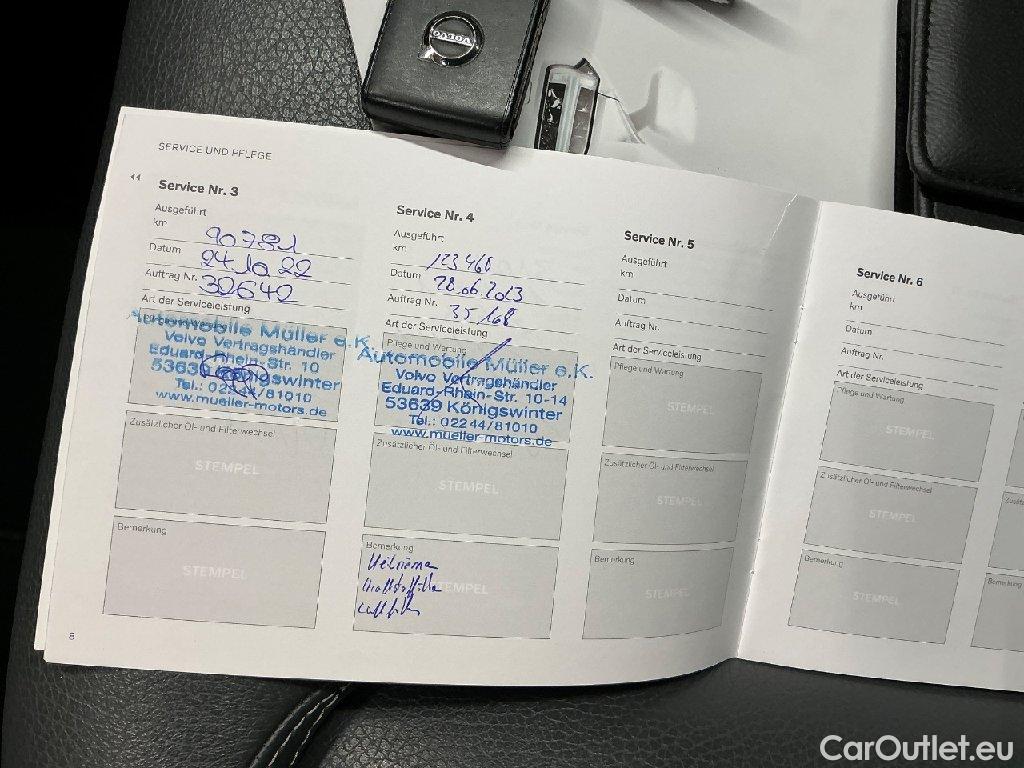 VOLVO
SERVICE UND PFLEGE
Service Nr. 3
Ausgeführt
km 90781
Datum 24.10.22
Auftrag Nr. 30640
Art der Serviceleistung
Automobile Müller e.K.
Volvo Vertragshändler
Eduard-Rhein-Str. 10
53639 Königswinter
Tel.: 02244/81010
www.mueller-motors.de
Zusätzlicher Öl- und Filterwechsel
STEMPEL
Bemerkung
STEMPEL
8
Service Nr. 4
Ausgeführt
km 123468
Datum 28.06.2023
Auftrag Nr. 35168
Art der Serviceleistung
Pflege und Wartung
Automobile Müller e.K.
Volvo Vertragshändler
Eduard-Rhein-Str. 10-14
53639 Königswinter
Tel.: 02244/81010
www.mueller-motors.de
Zusätzlicher Öl- und Filterwechsel
STEMPEL
Bemerkung
STEMPEL
Service Nr. 5
Ausgeführt
km
Datum
Auftrag Nr.
Art der Serviceleistung
Pflege und Wartung
STEMPEL
Zusätzlicher Öl- und Filterwechsel
STEMPEL
Bemerkung
STEMPEL
Service Nr. 6
Ausgeführt
km
Datum
Auftrag Nr.
Art der Serviceleistung
Pflege und Wartung
STEMPEL
Zusätzlicher Öl- und Filterwechsel
STEMPEL
Bemerkung
STEMPEL
Bemerkung
CarOutlet.eu